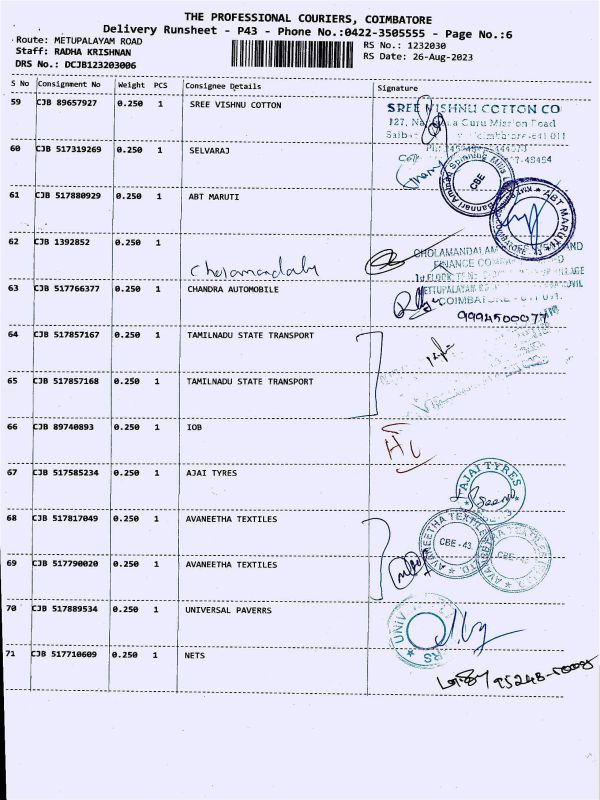 THE PROFESSIONAL COURIERS, COIMBATORE
Delivery Runsheet - P43 - Phone No.:0422-3505555 - Page No.:6
Route: METUPALAYAM ROAD
Staff: RADHA KRISHNAN
DRS No.: DCJB123203006
RS No.: 1232030
RS Date: 26-Aug-2023
S No Consignment No Weight PCS Consignee Details Signature
59 CJB 89657927 0.250 1 SREE VISHNU COTTON
SREE VISHNU COTTON CO
127, Guru Mission Road
60 CJB 517319269 0.250 1 SELVARAJ
Bannari Amman Spinning Mills
CBE
61 CJB 517880929 0.250 1 ABT MARUTI
ABT MARUTI
62 CJB 1392852 0.250 1
Cholamandalam
CHOLAMANDALAM
FINANCE
63 CJB 517766377 0.250 1 CHANDRA AUTOMOBILE
9994500077
64 CJB 517857167 0.250 1 TAMILNADU STATE TRANSPORT
65 CJB 517857168 0.250 1 TAMILNADU STATE TRANSPORT
66 CJB 89740893 0.250 1 IOB
67 CJB 517585234 0.250 1 AJAI TYRES
AJAI TYRES
68 CJB 517817049 0.250 1 AVANEETHA TEXTILES
AVANEETHA TEXTILES
CBE - 43
69 CJB 517790020 0.250 1 AVANEETHA TEXTILES
70 CJB 517889534 0.250 1 UNIVERSAL PAVERRS
71 CJB 517710609 0.250 1 NETS